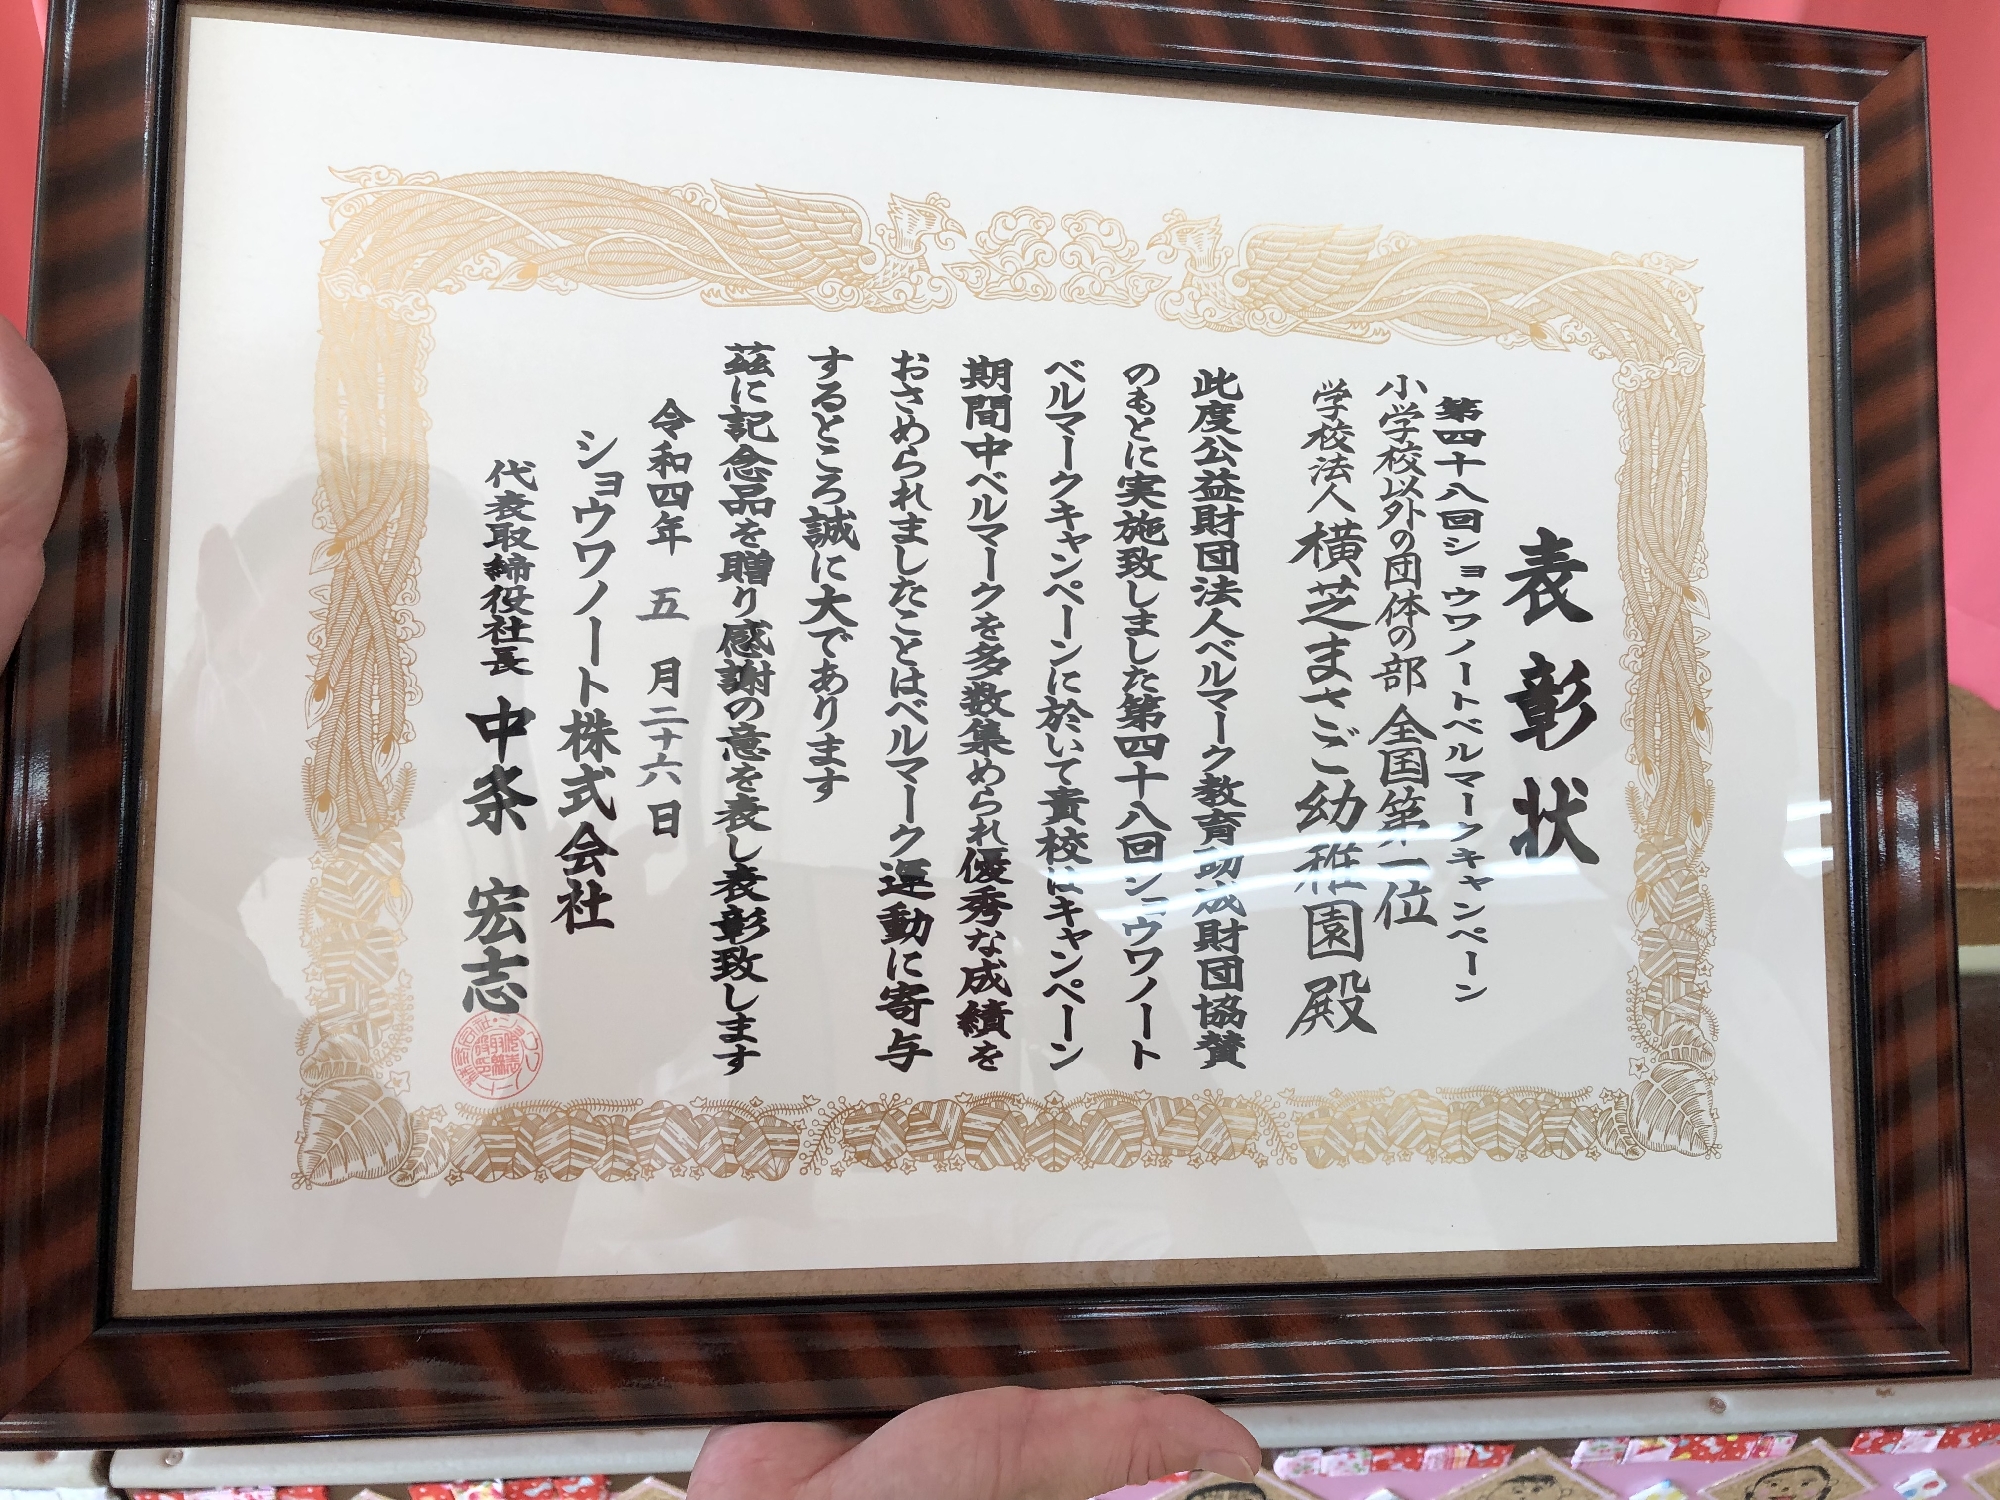 表彰状
第四十八回ショウワノートベルマークキャンペーン
小学校以外の団体の部 全国第一位
学校法人 横芝まさご幼稚園 殿
此度公益財団法人ベルマーク教育助成財団協賛
のもとに実施致しました第四十八回ショウワノート
ベルマークキャンペーンに於いて貴校はキャンペーン
期間中ベルマークを多数集められ優秀な成績を
おさめられましたことはベルマーク運動に寄与
するところ誠に大であります
茲に記念品を贈り感謝の意を表し表彰致します
令和四年 五 月二十六日
ショウワノート株式会社
代表取締役社長 中条 宏志